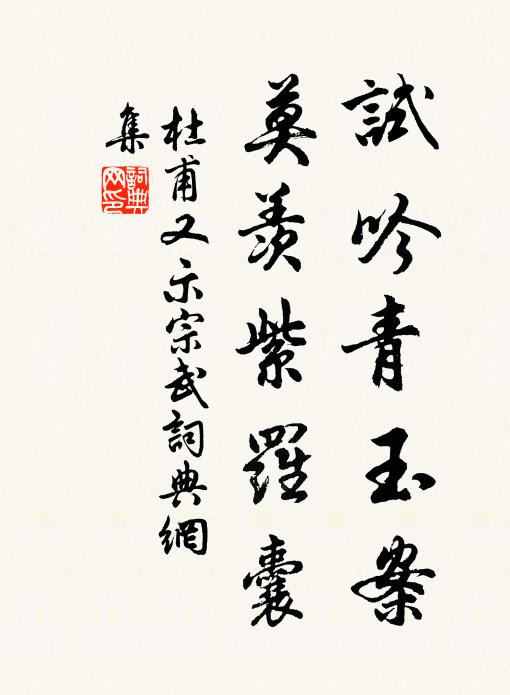 試吟青玉案
莫羨紫羅囊
杜甫又示宗武詞典網
集
詞典網印